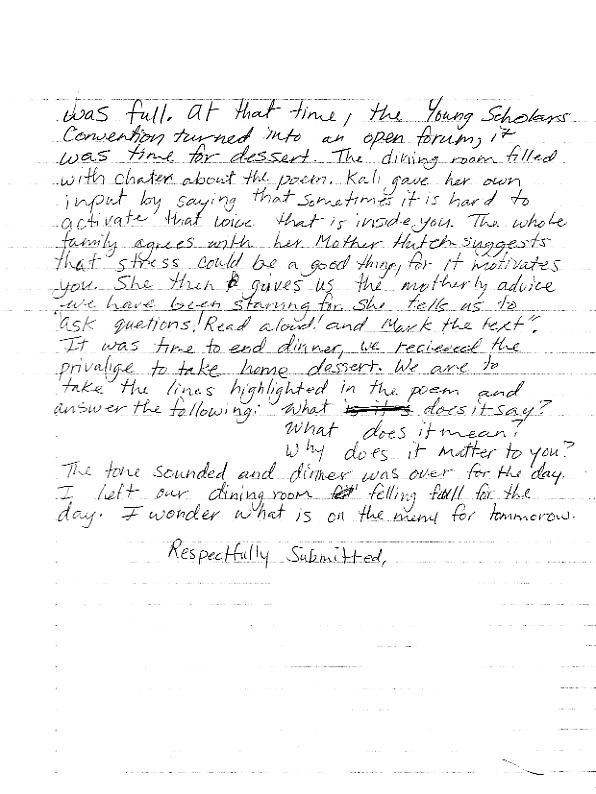 was full. At that time, the Young Scholars
Convention turned into an open forum, it
was time for dessert. The dining room filled
with chater about the poem. Kali gave her own
input by saying that sometimes it is hard to
activate that voice that is inside you. The whole
family agrees with her. Mother Hutch suggests
that stress could be a good thing, for it motivates
you. She then gives us the motherly advice
we have been starving for. She tells us to
"ask quetions! Read aloud! and Mark the text".
It was time to end dinner, we recieved the
privalige to take home dessert. We are to
take the lines highlighted in the poem and
answer the following: What does it say?
What does it mean?
Why does it matter to you?
The tone sounded and dinner was over for the day.
I left our dining room felling full for the
day. I wonder what is on the menu for tommorow.
Respectfully Submitted,